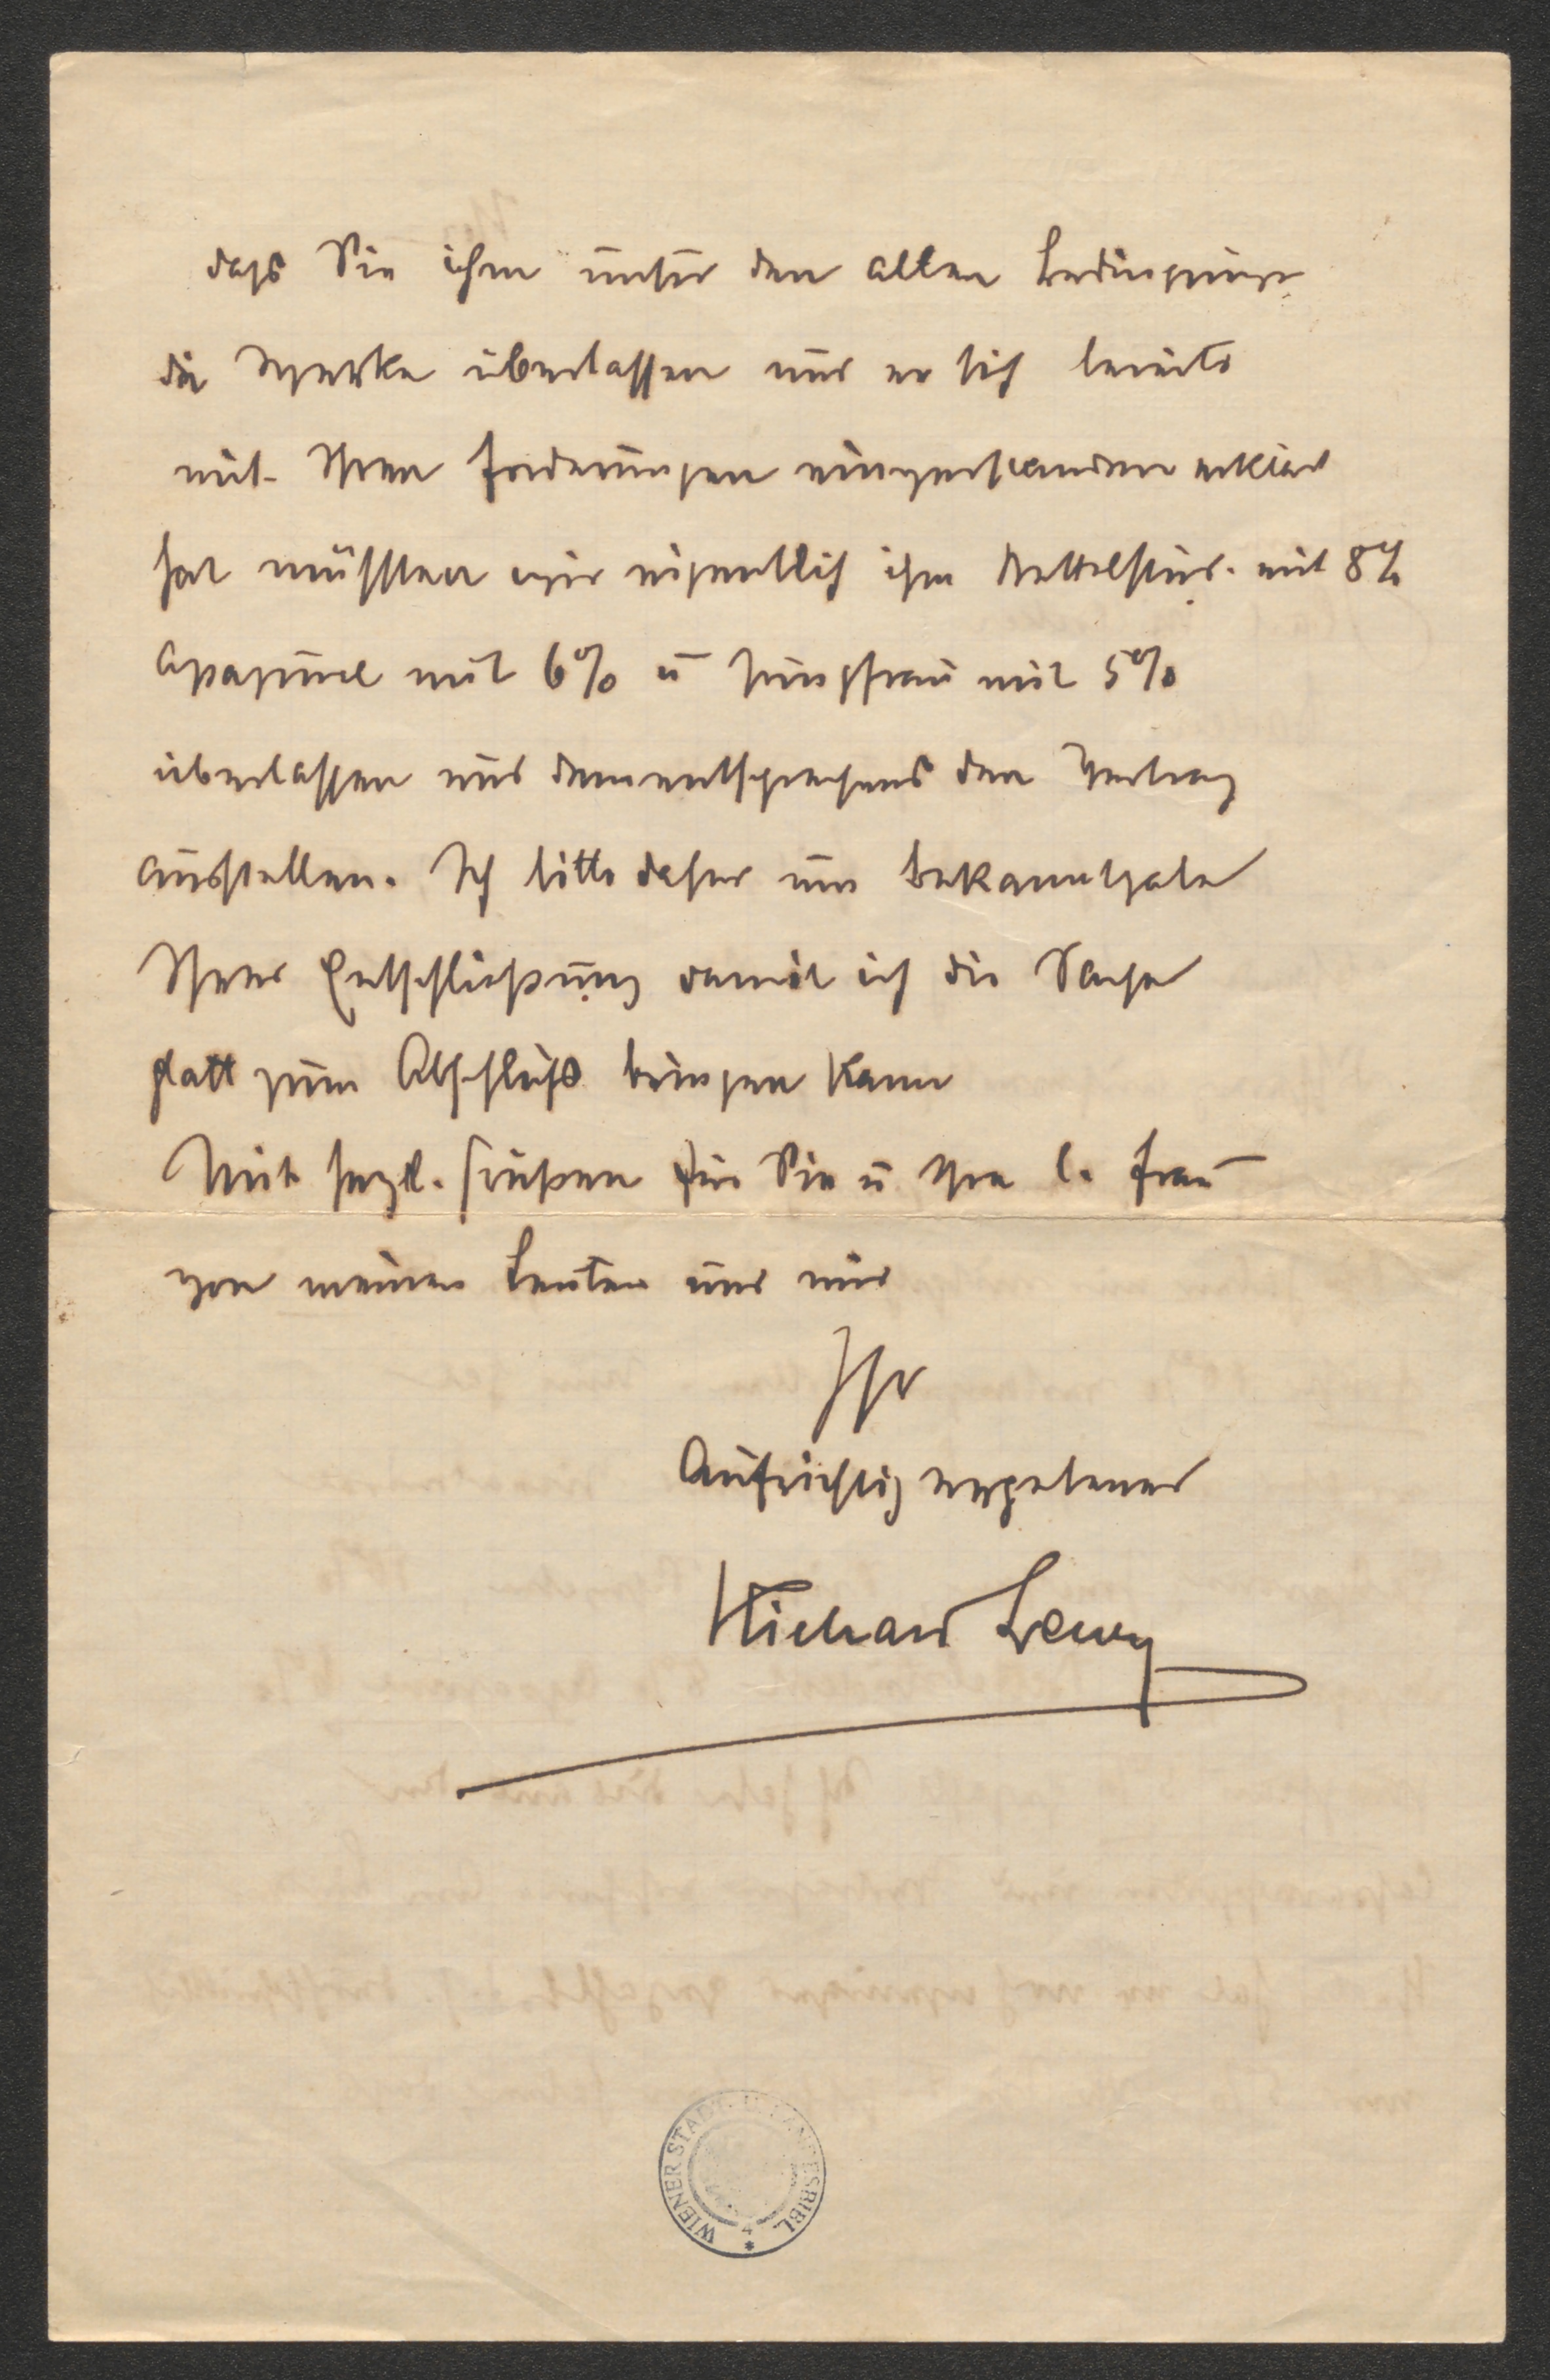 daß Sie ihm unter den alten Bedingungen
die Werke überlassen und er sich bereits
mit Ihren Forderungen einverstanden erklärt
hat müssten wir eigentlich ihm Bettelstud. mit 8%
Gasparone mit 6% u Jungfrau mit 5%
überlassen und dementsprechend den Vertrag
ausstellen. Ich bitte daher um Bekanntgabe
Ihrer Entschließung damit ich die Sache
glatt zum Abschluß bringen kann
Mit herzl. Grüßen für Sie u Ihre l. Frau
von meinen Leuten und mir
Ihr
Aufrichtig ergebener
Richard Lewy
WIENER STADT- U. LANDESBIBL.